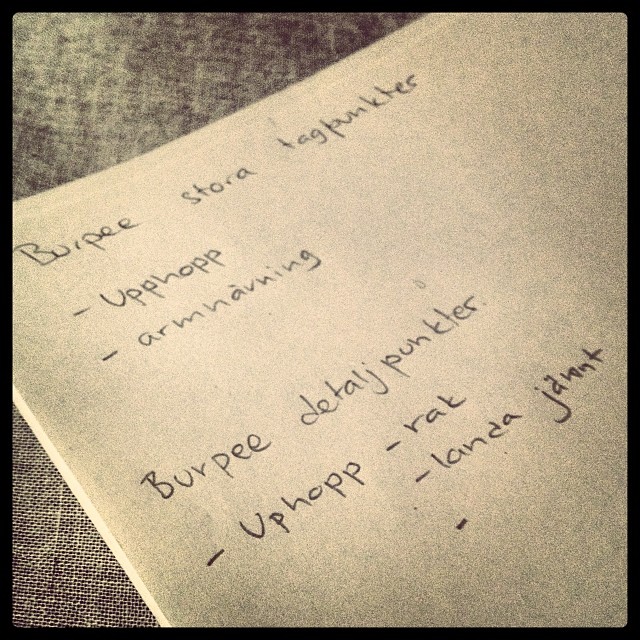 Burpee stora tagpunkter
- Upphopp
- armhävning
Burpee detaljpunkter
- Uphopp - rak
- landa jämnt
-